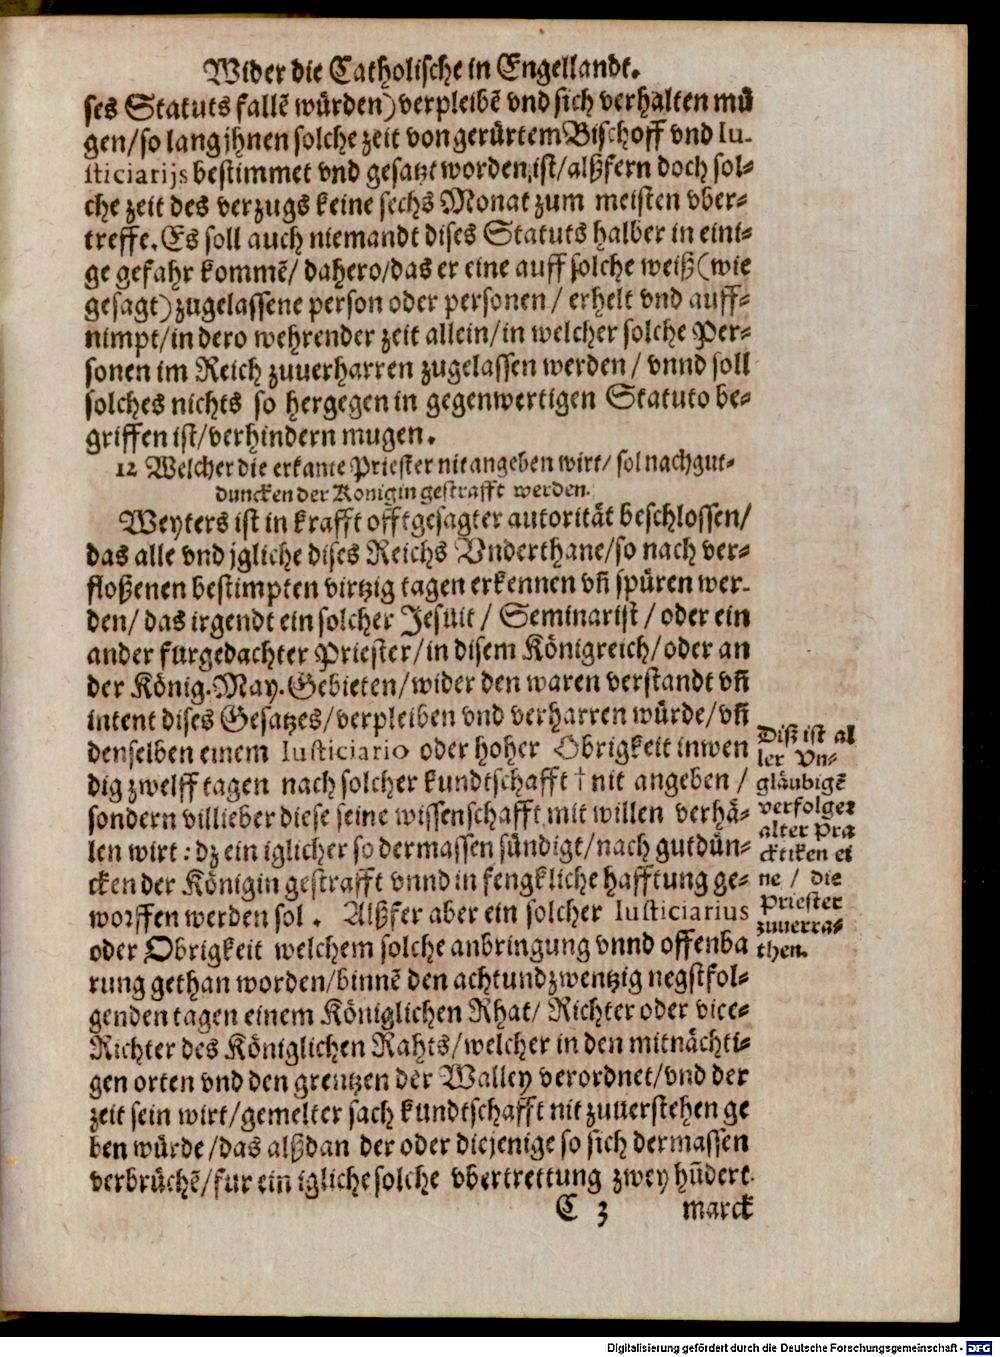 Wider die Catholische in Engellandt.
ses Statuts fallẽ würden) verpleibẽ vnd sich verhalten mü
gen/so lang jhnen solche zeit von gerürtem Bischoff vnd Iu-
sticiarijs bestimmet vnd gesatzt worden ist/alßfern doch sol-
che zeit des verzugs keine sechs Monat zum meisten vber-
treffe. Es soll auch niemandt dises Statuts halber in eini-
ge gefahr kommẽ/ dahero/das er eine auff solche weiß (wie
gesagt) zugelassene person oder personen/ erhelt vnd auff-
nimpt/in dero wehrender zeit allein/in welcher solche Per-
sonen im Reich zuuerharren zugelassen werden/ vnnd soll
solches nichts so hergegen in gegenwertigen Statuto be-
griffen ist/verhindern mugen.
12 Welcher die erkante Priester nit angeben wirt/ sol nach gut-
duncken der Konigin gestrafft werden.
Weyters ist in krafft offtgesagter autoritåt beschlossen/
das alle vnd jgliche dises Reichs Vnderthane/so nach ver-
floßenen bestimpten virtzig tagen erkennen vñ spüren wer-
den/ das irgendt ein solcher Jesuit/ Seminarist/ oder ein
ander furgedachter Priester/in disem Königreich/oder an
der König. May. Gebieten/wider den waren verstandt vñ
intent dises Gesatzes/verpleiben vnd verharren würde/vñ
denselben einem Iusticiario oder hoher Obrigkeit inwen
dig zwelff tagen nach solcher kundtschafft † nit angeben/
sondern villieber diese seine wissenschafft mit willen verhå-
len wirt: dz ein iglicher so dermassen sündigt/nach gutdün-
cken der Königin gestrafft vnnd in fengkliche hafftung ge-
worffen werden sol. Alßfer aber ein solcher Iusticiarius
oder Obrigkeit welchem solche anbringung vnnd offenba
rung gethan worden/binnẽ den achtundzwentzig negstfol-
genden tagen einem Königlichen Rhat/ Richter oder vice-
Richter des Königlichen Rahts/welcher in den mitnåchti-
gen orten vnd den grentzen der Walley verordnet/vnd der
zeit sein wirt/gemelter sach kundtschafft nit zuuerstehen ge
ben würde/das alßdan der oder diejenige so sich dermassen
verbrüchẽ/fur ein igliche solche vbertrettung zwey hũdert
C 3 marck
Diß ist al
ler Vn-
glåubigẽ
verfolger
alter Pra
cktiken ei
ne/ die
Priester
zuuerra-
then.
Digitalisierung gefördert durch die Deutsche Forschungsgemeinschaft - DFG